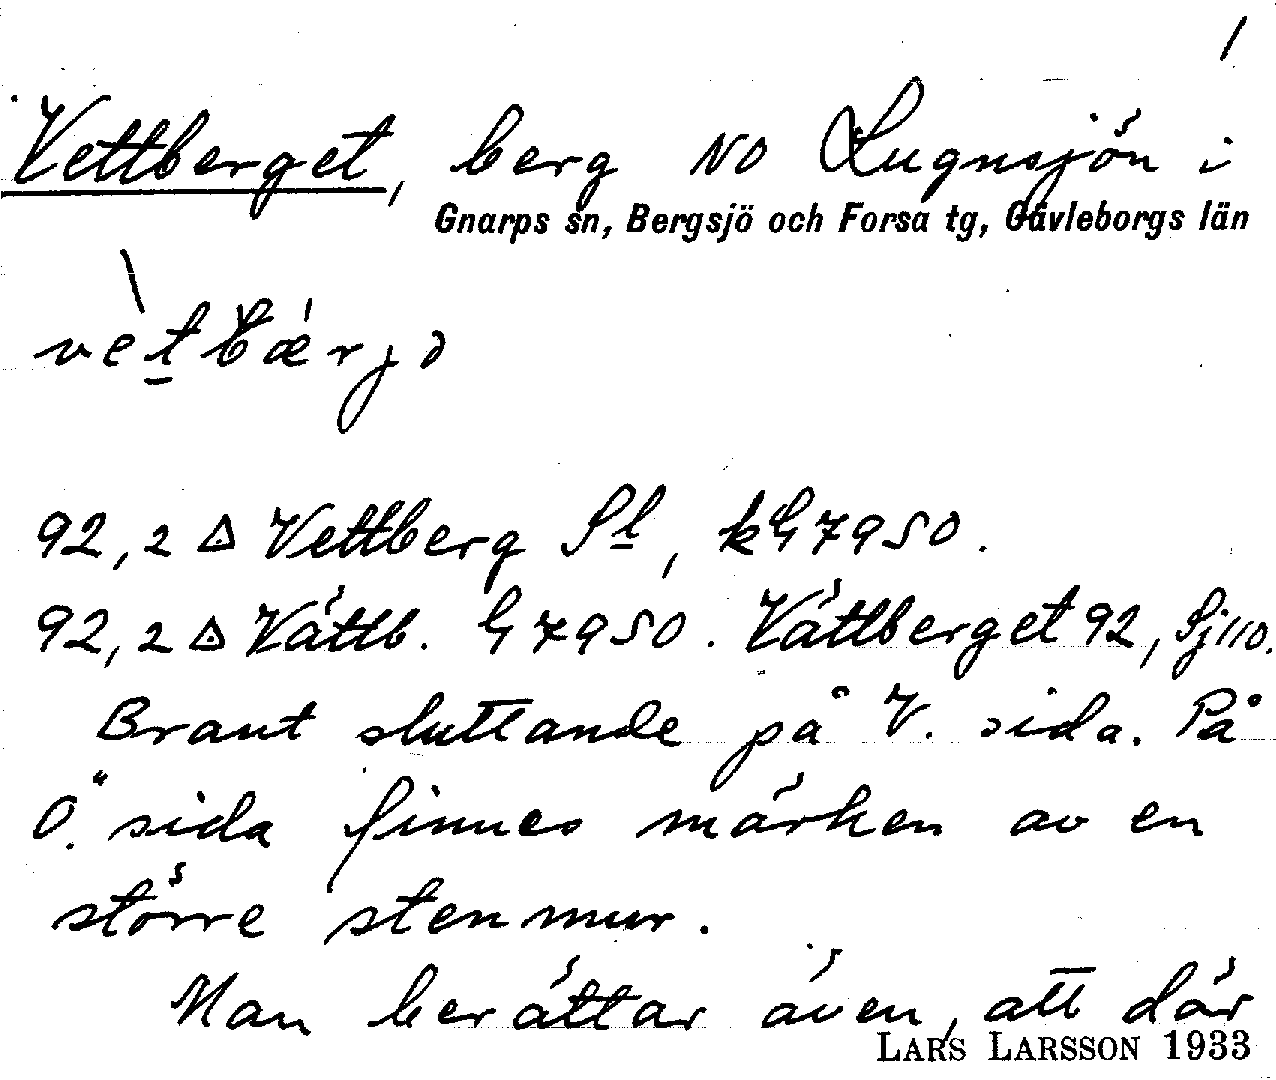 1
Vettberget, berg NO Lugnsjön i
Gnarps sn, Bergsjö och Forsa tg, Gävleborgs län
vètbær̀jə
92,2 △ Vettberg St, kG7950.
92,2 △ Vättb. G7950. Vättberget 92, Sj110.
Brant sluttande på V. sida. På
Ö. sida finnes märken av en
större stenmur.
Man berättar även, att där
LARS LARSSON 1933